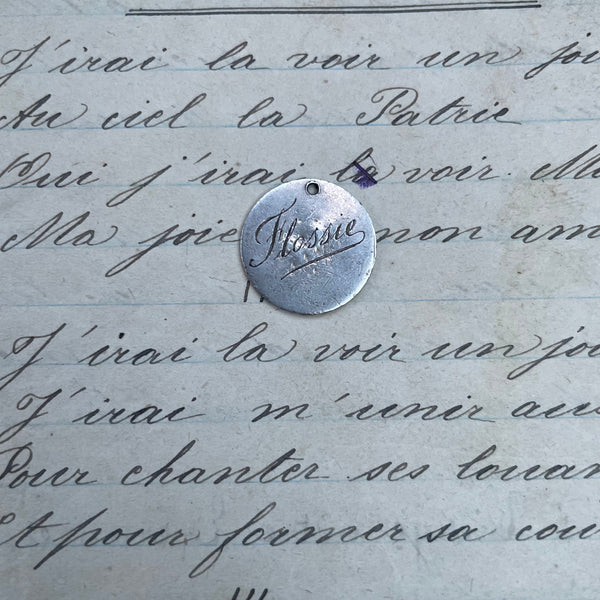 J'irai la voir un jou
Au ciel la Patrie
Oui j'irai la voir. Ma
Ma joie mon am
Flossie
J'irai la voir un jou
J'irai m'unir aux
Pour chanter ses louan
Et pour former sa cou
III